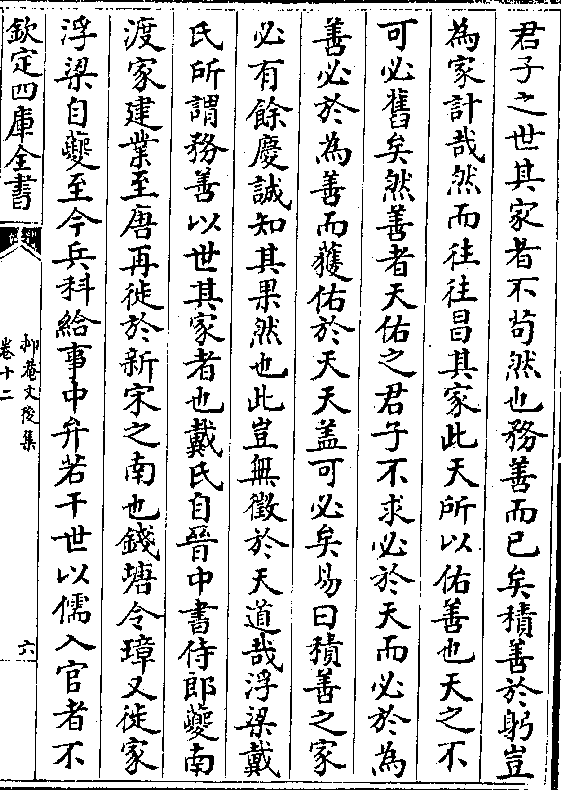 君子之世其家者不苟然也務善而已矣積善於躬豈
為家計哉然而往往昌其家此天所以佑善也天之不
可必舊矣然善者天佑之君子不求必於天而必於為
善必於為善而獲佑於天天盖可必矣易曰積善之家
必有餘慶誠知其果然也此豈無徵於天道哉浮梁戴
氏所謂務善以世其家者也戴氏自晉中書侍郎夔南
渡家建業至唐再徙於新宋之南也錢塘令璋又徙家
浮梁自夔至今兵科給事中弁若干世以儒入官者不
欽定四庫全書
抑菴文後集
卷十二
六